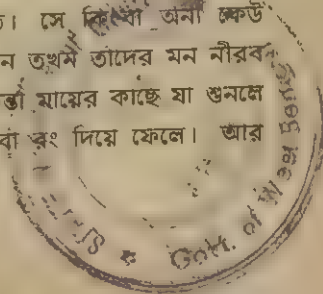 ত। সে কিংবা অন্য কেউ
ন তখন তাদের মন নীরব
র্তা মায়ের কাছে যা শুনলে
বা রং দিয়ে ফেলে। আর
Govt. of West Beng